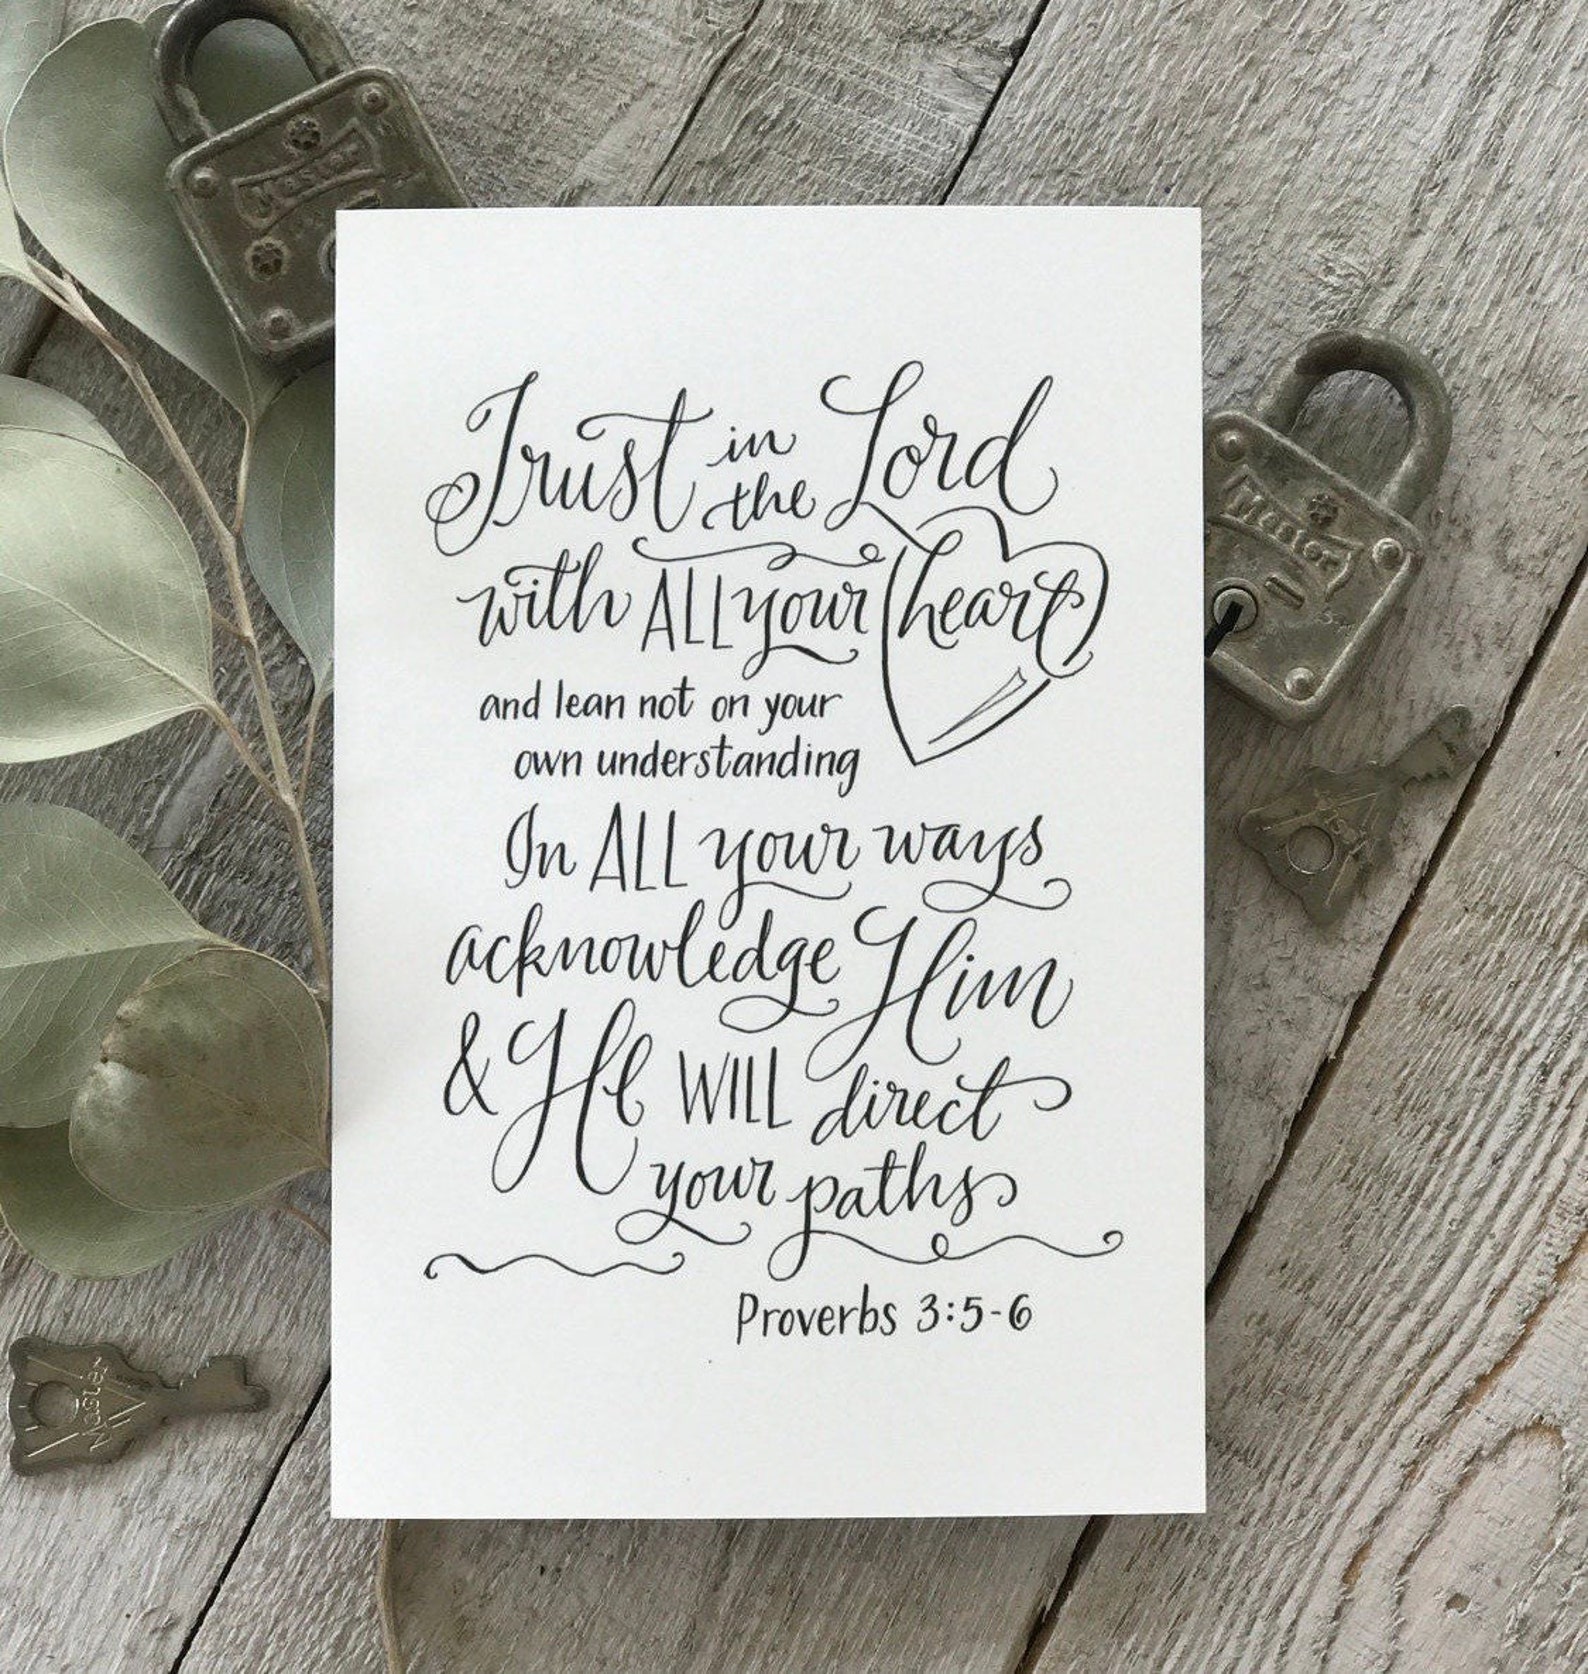 Master
Trust in the Lord
with ALL your heart
and lean not on your
own understanding
In ALL your ways
acknowledge Him
& He WILL direct
your paths
Proverbs 3:5-6
Master
Master